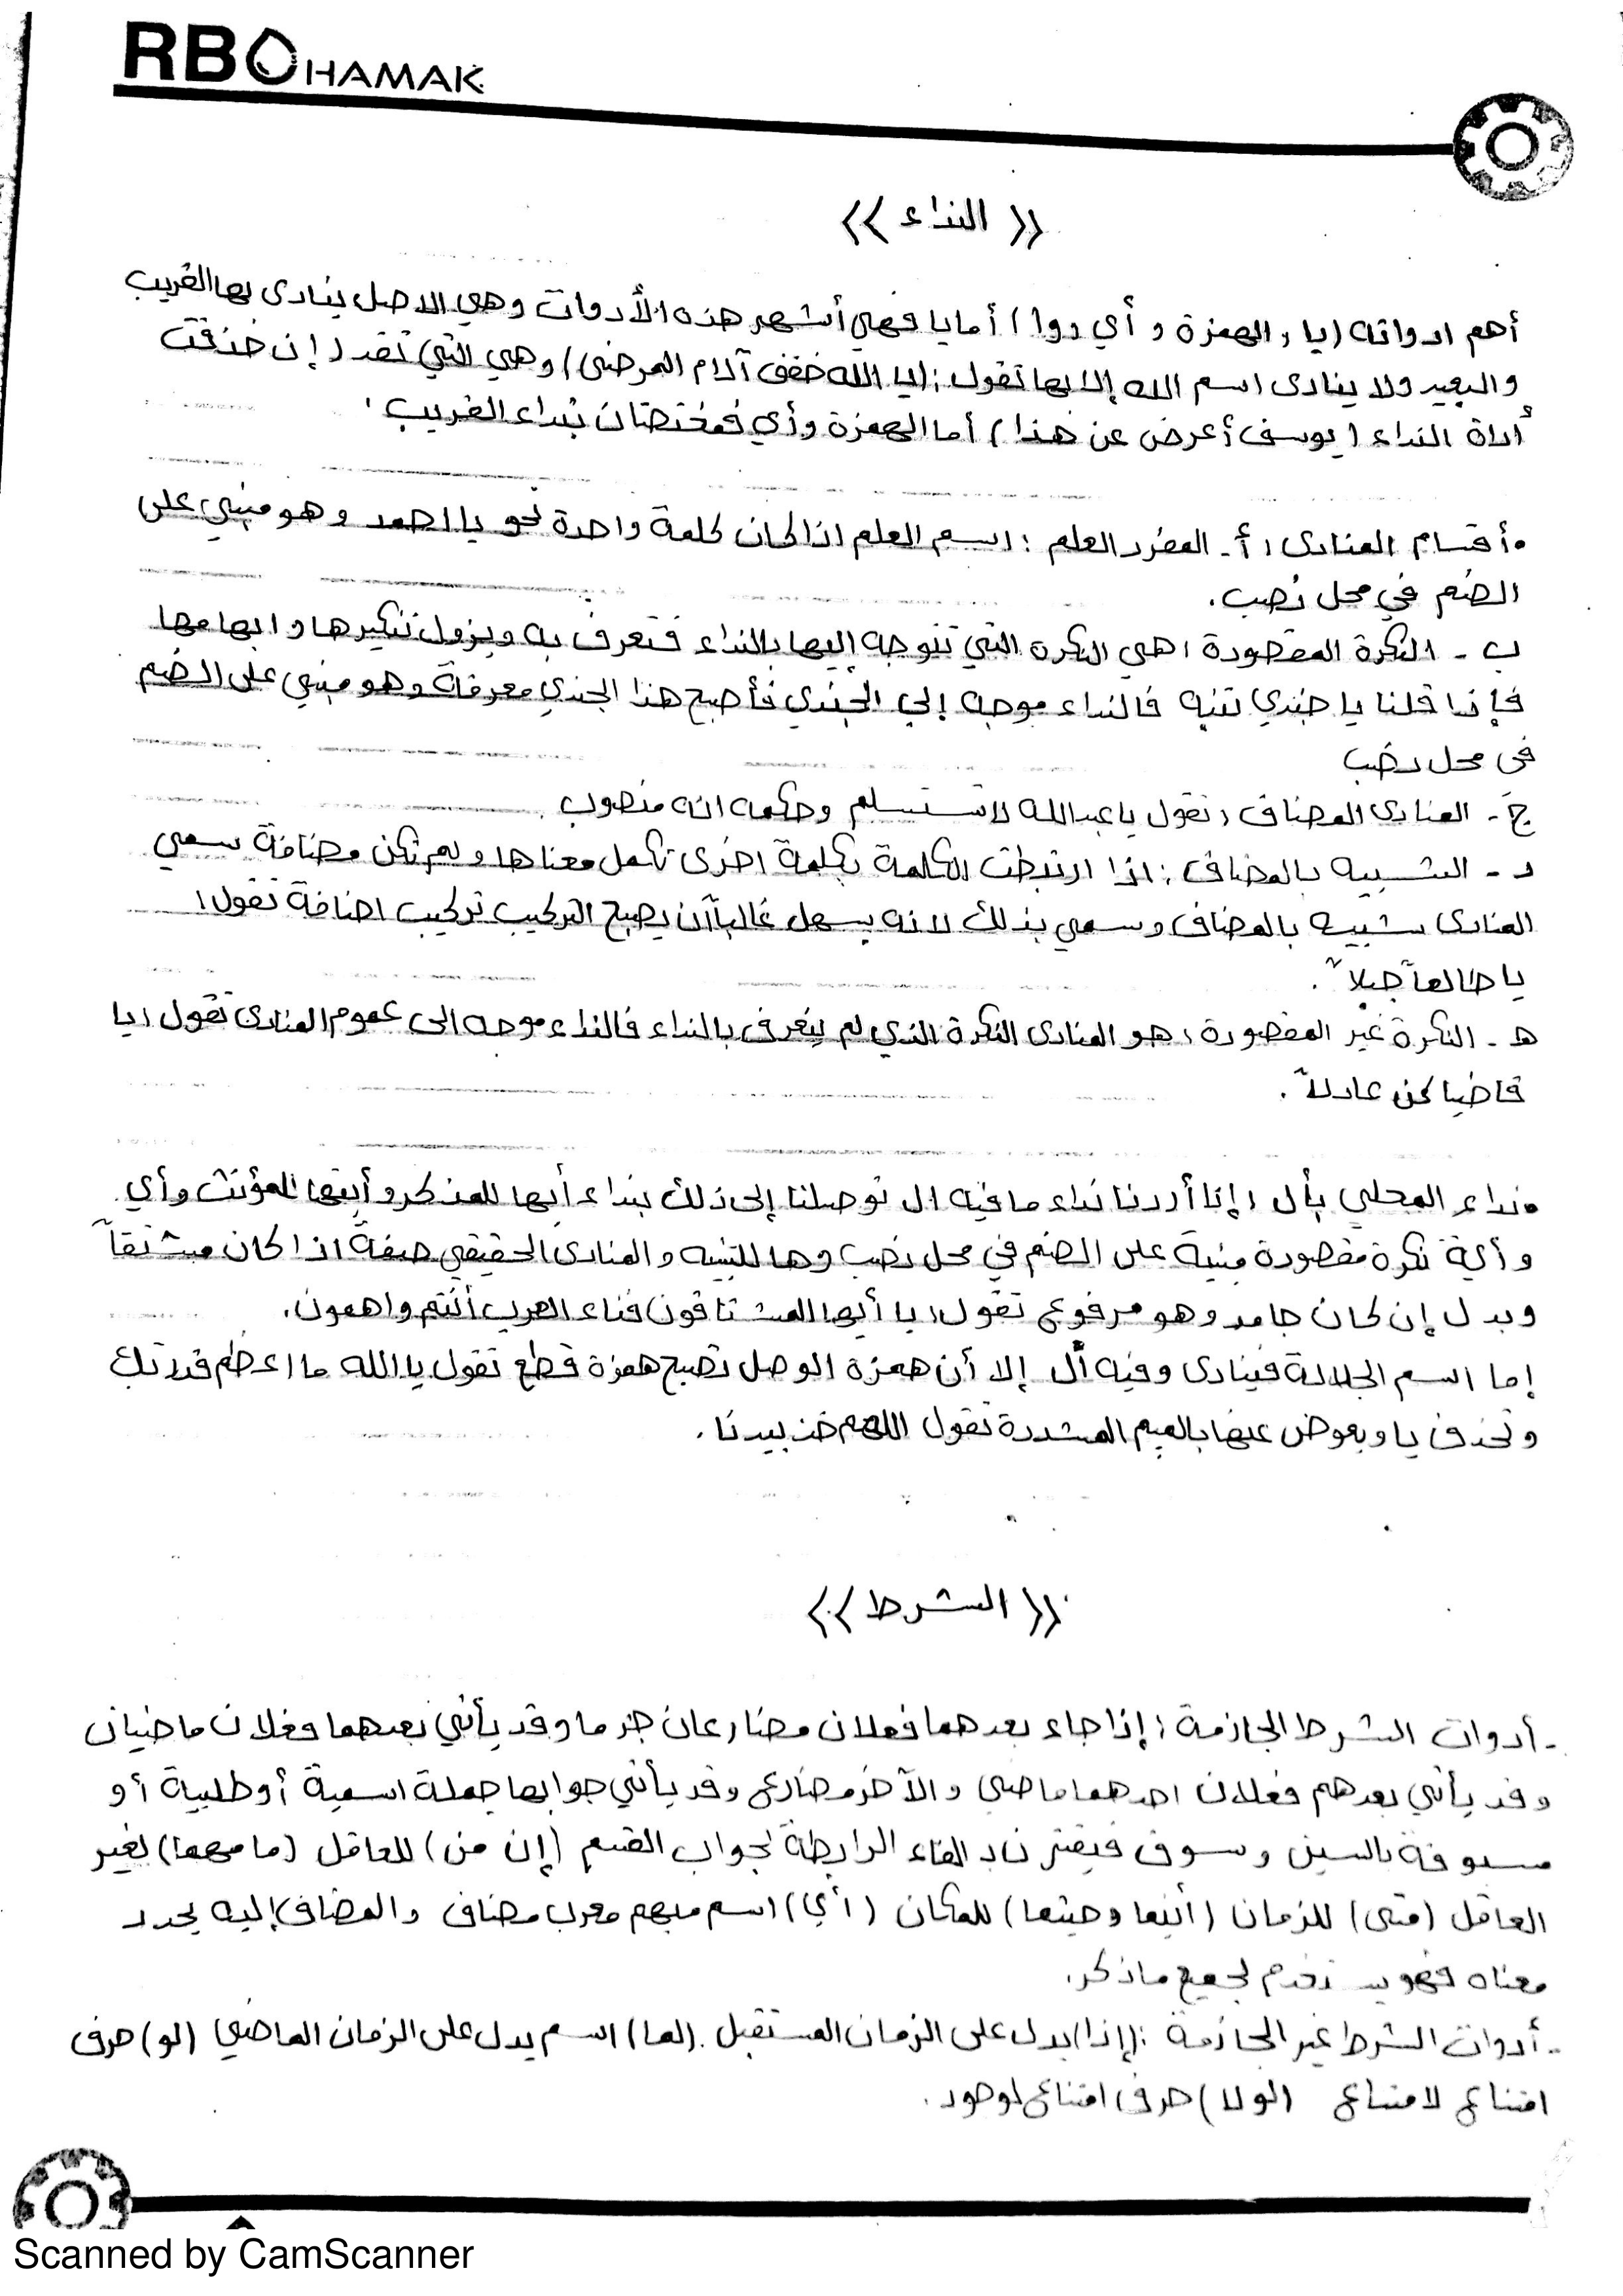 RBOHAMAK
(( النداء ))
أهم ادواته (يا ، الهمزة و أي ووا) أما يا فهي أشهر هذه الأدوات وهي الاصل ينادى بها القريب
والبعيد ولا ينادى اسم الله إلا بها تقول: (يا الله خفف آلام المرضى) وهي التي تقدر إن حذفت
أداة النداء (يوسف أعرض عن هذا) أما الهمزة وأي فمختصتان بنداء القريب.
• أقسام المنادى: أ- المفرد العلم: اسم العلم اذا كان كلمة واحدة نحو يا احمد وهو مبني على
الضم في محل نصب.
ب - النكرة المقصودة: هي النكرة التي تتوجه إليها بالنداء فتعرف به ويزول تنكيرها وابهامها
فإذا قلنا يا جندي تنبه فالنداء موجه إلى الجندي فأصبح هذا الجندي معرفة وهو مبني على الضم
في محل نصب
ج- المنادى المضاف: تقول يا عبدالله لا تستسلم وحكمه انه منصوب.
د - الشبيه بالمضاف: اذا ارتبطت الكلمة بكلمة اخرى تكمل معناها ولم تكن مضافة سمي
المنادى شبيه بالمضاف وسمي بذلك لانه يسهل غالباً أن يصبح التركيب تركيب اضافة تقول:
يا طالعاً جبلاً.
هـ - النكرة غير المقصودة: هو المنادى النكرة الذي لم يتعرف بالنداء فالنداء موجه الى عموم المنادى تقول: يا
قاضيا كن عادلاً.
• نداء المحلي بأل: إذا أردنا نداء ما فيه ال توصلنا إلى ذلك بنداء أيها للمذكر وأيتها للمؤنث وأي
وأية نكرة مقصودة مبنية على الضم في محل نصب وها للتنبيه والمنادى الحقيقي صفة اذا كان مشتقاً
وبدل إن كان جامد وهو مرفوع تقول: يا أيها المشتاقون فناء العرب أنتم واهمون.
إما اسم الجلالة فينادى وفيه أل إلا أن همزة الوصل تصبح همزة قطع تقول يا الله ما اعظم قدرتك
وتحذف يا ويعوض عنها بالميم المشددة تقول اللهم خذ بيدنا.
(( الشرط ))
- أدوات الشرط الجازمة: إذا جاء بعدهما فعلان مضارعان جزما وقد يأتي بعدهما فعلان ماضيان
وقد يأتي بعدهم فعلان احدهما ماضي والآخر مضارع وقد يأتي جوابها جملة اسمية أو طلبية أو
مسبوقة بالسين وسوف فيقترنان بالفاء الرابطة لجواب القسم (إن من) للعاقل (ما مهما) لغير
العاقل (متى) للزمان (أينما وحيثما) للمكان (أي) اسم مبهم معرب مضاف والمضاف إليه يحدد
معناه فهو يستخدم لجميع ما ذكر.
- أدوات الشرط غير الجازمة: (إذا) يدل على الزمان المستقبل. (لما) اسم يدل على الزمان الماضي (لو) حرف
امتناع لامتناع (لولا) حرف امتناع لوجود.
Scanned by CamScanner